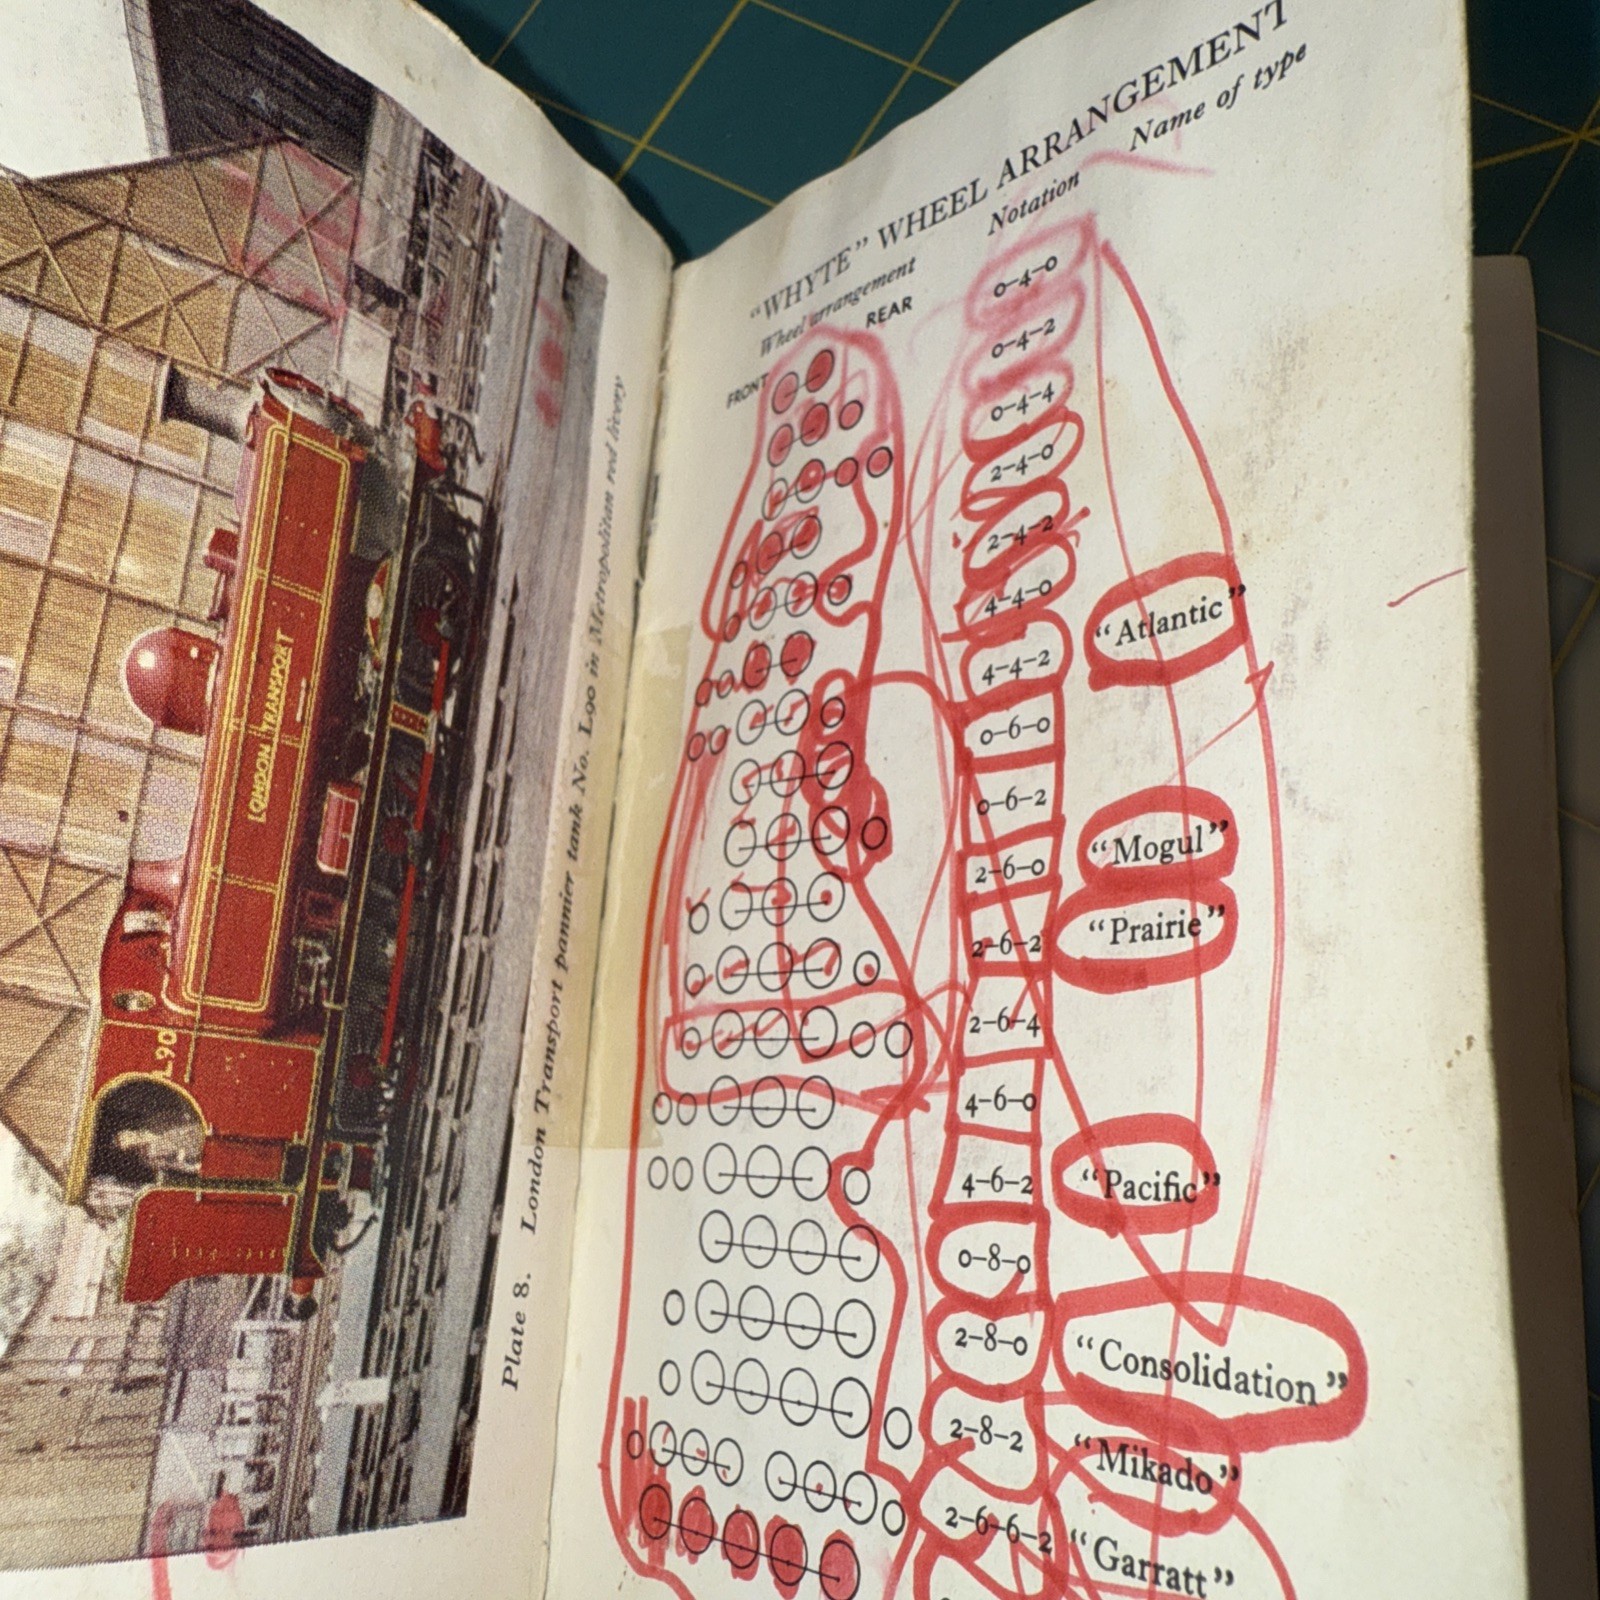 LONDON TRANSPORT
L90
Plate 8. London Transport pannier tank No. L90 in Metropolitan red livery.
“WHYTE” WHEEL ARRANGEMENT
Wheel arrangement Notation Name of type
FRONT REAR
0-4-0
0-4-2
0-4-4
2-4-0
2-4-2
4-4-0
4-4-2 “Atlantic”
0-6-0
0-6-2
2-6-0 “Mogul”
2-6-2 “Prairie”
2-6-4
4-6-0
4-6-2 “Pacific”
0-8-0
2-8-0 “Consolidation”
2-8-2 “Mikado”
2-6-6-2 “Garratt”